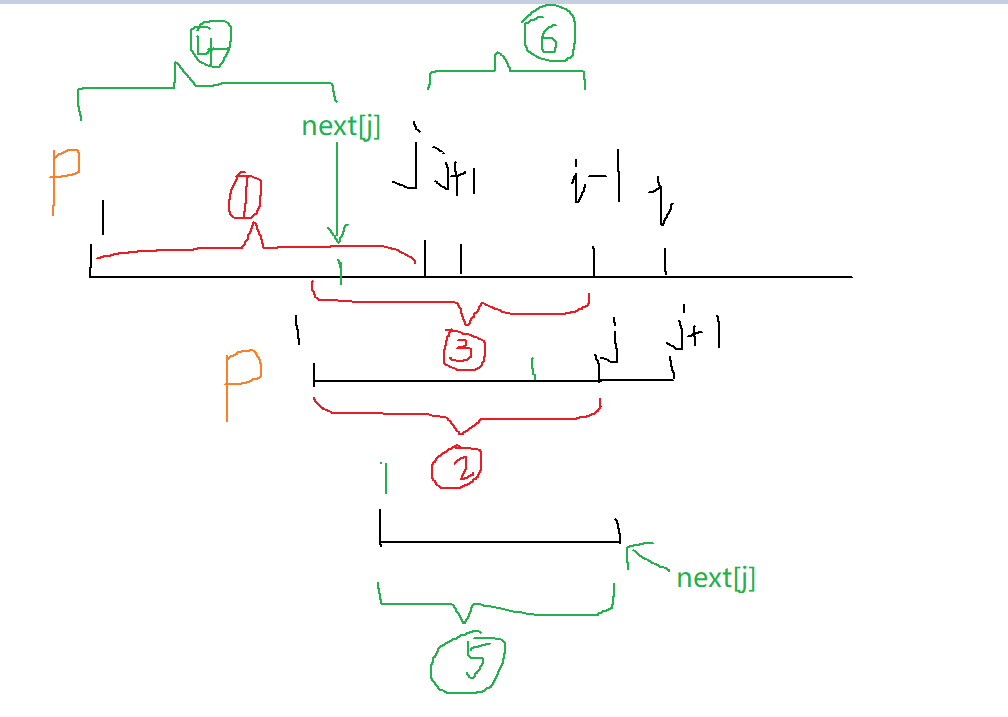 4 6
next[j]
P 1 1 j j+1 i-1 i
3
P 1 j j+1
2
1
next[j]
5